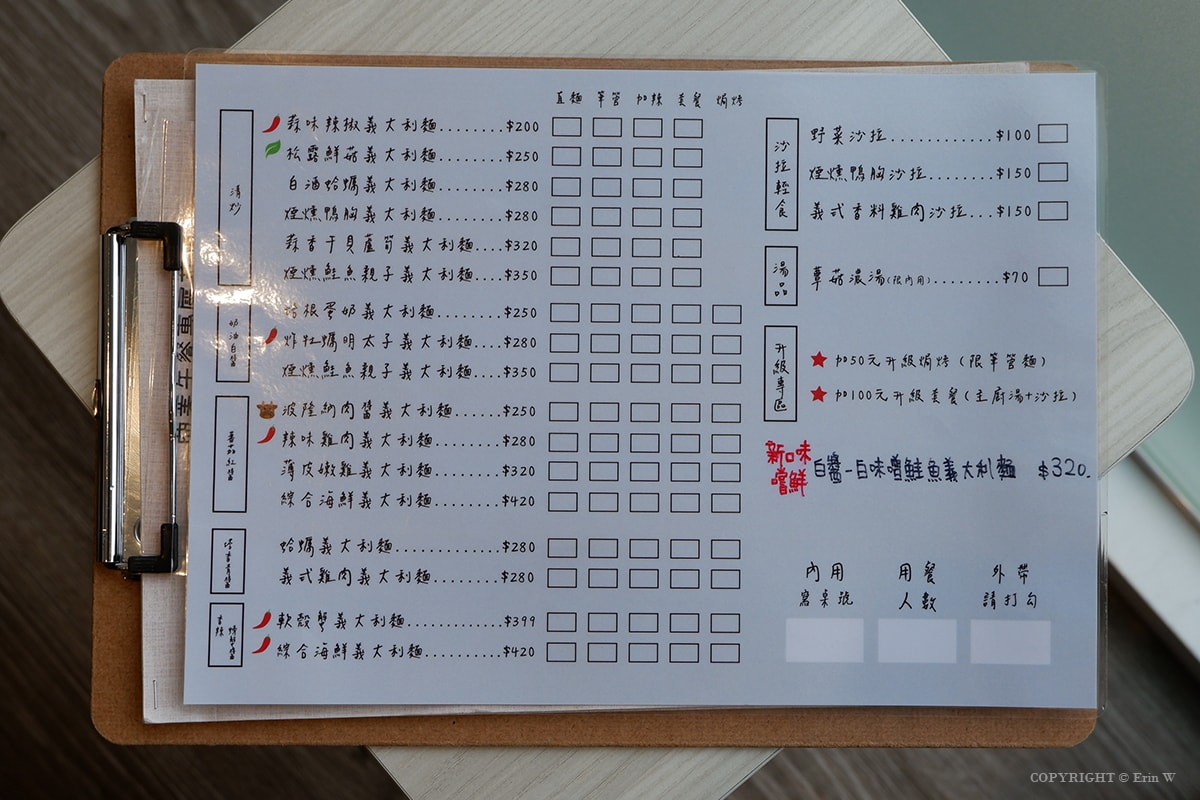 直麵 筆管 加辣 美餐 焗烤
清炒
蒜味辣椒義大利麵........$200
松露鮮菇義大利麵........$250
白酒蛤蠣義大利麵.......$280
煙燻鴨胸義大利麵.......$280
蒜香干貝蘆筍義大利麵....$320
煙燻鮭魚親子義大利麵....$350
奶油白醬
培根蛋奶義大利麵.......$250
炸牡蠣明太子義大利麵....$280
煙燻鮭魚親子義大利麵....$350
蕃茄紅醬
波隆納肉醬義大利麵......$250
辣味雞肉義大利麵.......$280
薄皮嫩雞義大利麵.......$320
綜合海鮮義大利麵.......$420
塔香青醬
蛤蠣義大利麵............$280
義式雞肉義大利麵........$280
香辣
軟殼蟹義大利麵.........$399
綜合海鮮義大利麵.........$420
沙拉輕食
野菜沙拉............$100
煙燻鴨胸沙拉........$150
義式香料雞肉沙拉...$150
湯品
蕈菇濃湯(限內用)........$70
升級專區
加50元升級焗烤 (限筆管麵)
加100元升級美餐(主廚湯+沙拉)
新口味
嚐鮮
白醬-白味噌鮭魚義大利麵 $320.
內用 用餐 外帶
寫桌號 人數 請打勾
COPYRIGHT © Erin W